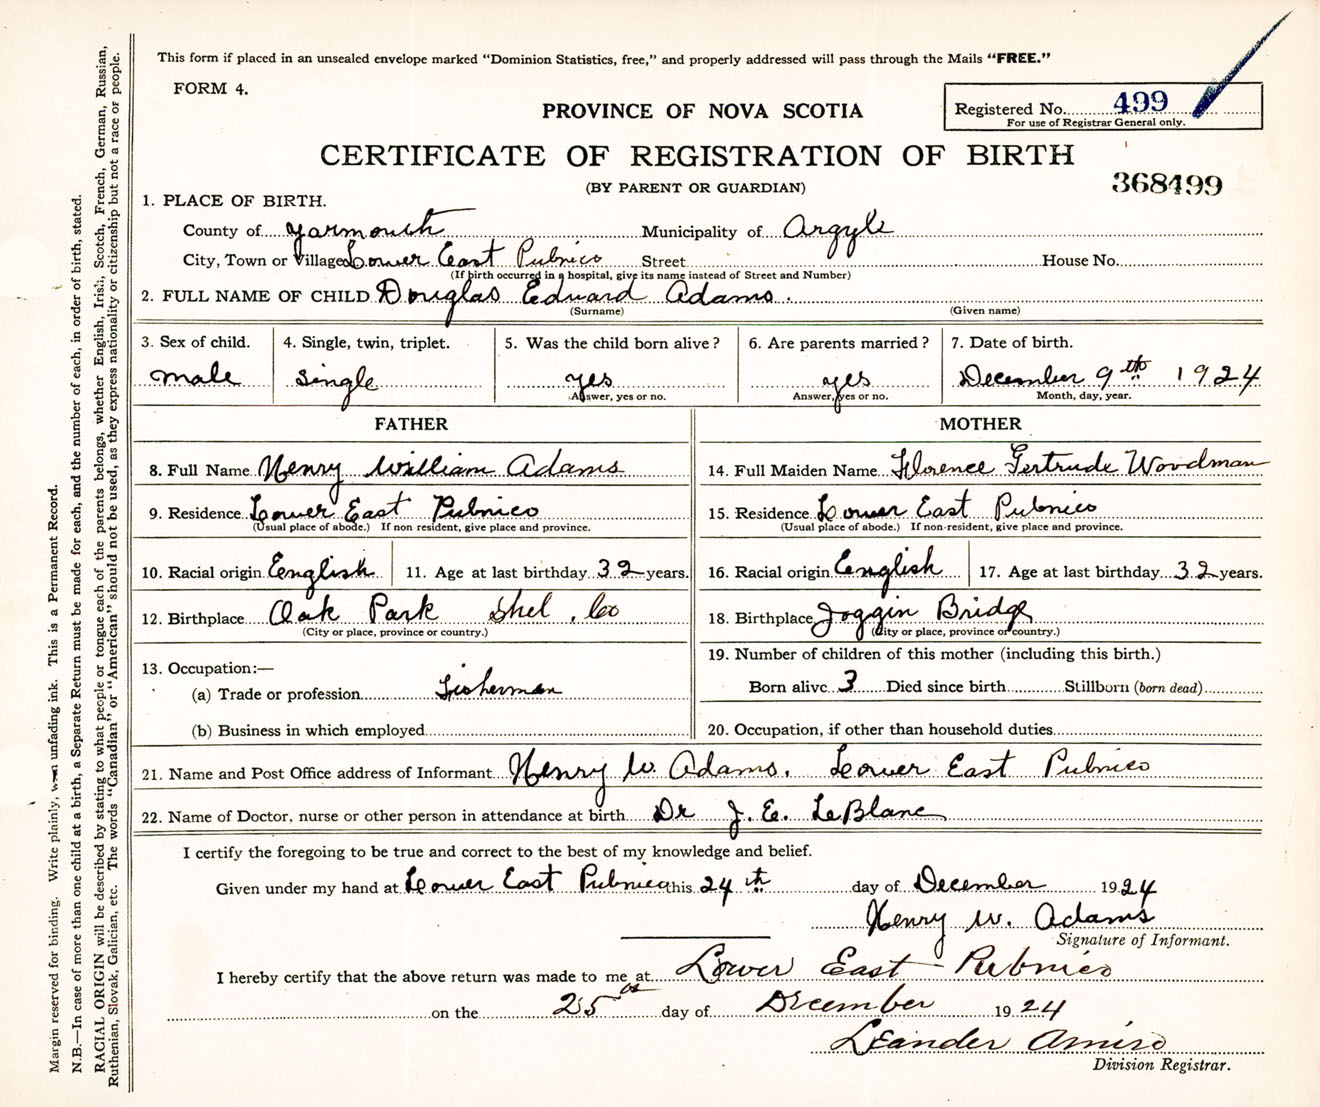 This form if placed in an unsealed envelope marked “Dominion Statistics, free,” and properly addressed will pass through the Mails “FREE.”
FORM 4.
PROVINCE OF NOVA SCOTIA
Registered No. 499
For use of Registrar General only.
CERTIFICATE OF REGISTRATION OF BIRTH
(BY PARENT OR GUARDIAN)
368499
1. PLACE OF BIRTH.
County of Yarmouth Municipality of Argyle
City, Town or Village Lower East Pubnico Street House No.
(If birth occurred in a hospital, give its name instead of Street and Number)
2. FULL NAME OF CHILD Douglas Edward Adams.
(Surname) (Given name)
3. Sex of child. 4. Single, twin, triplet. 5. Was the child born alive? 6. Are parents married? 7. Date of birth.
male single yes yes December 9th 1924
Answer, yes or no. Answer, yes or no. Month, day, year.
FATHER MOTHER
8. Full Name Henry William Adams 14. Full Maiden Name Florence Gertrude Woodman
9. Residence Lower East Pubnico 15. Residence Lower East Pubnico
(Usual place of abode.) If non resident, give place and province. (Usual place of abode.) If non-resident, give place and province.
10. Racial origin English 11. Age at last birthday 32 years. 16. Racial origin English 17. Age at last birthday 32 years.
12. Birthplace Oak Park Shel. Co 18. Birthplace Joggin Bridge
(City or place, province or country.) (City or place, province or country.)
13. Occupation:— 19. Number of children of this mother (including this birth.)
(a) Trade or profession Fisherman Born alive 3 Died since birth Stillborn (born dead)
(b) Business in which employed 20. Occupation, if other than household duties
21. Name and Post Office address of Informant Henry W. Adams. Lower East Pubnico
22. Name of Doctor, nurse or other person in attendance at birth Dr J. E. LeBlanc
I certify the foregoing to be true and correct to the best of my knowledge and belief.
Given under my hand at Lower East Pubnico this 24th day of December 1924
Henry W. Adams
Signature of Informant.
I hereby certify that the above return was made to me at Lower East Pubnico
on the 25 day of December 1924
Leander Amiro
Division Registrar.
Margin reserved for binding. Write plainly, with unfading ink. This is a Permanent Record.
N.B.—In case of more than one child at a birth, a Separate Return must be made for each, and the number of each, in order of birth, stated.
RACIAL ORIGIN will be described by stating to what people or tongue each of the parents belongs, whether English, Irish, Scotch, French, German, Russian,
Ruthenian, Slovak, Galician, etc. The words “Canadian” or “American” should not be used, as they express nationality or citizenship but not a race or people.